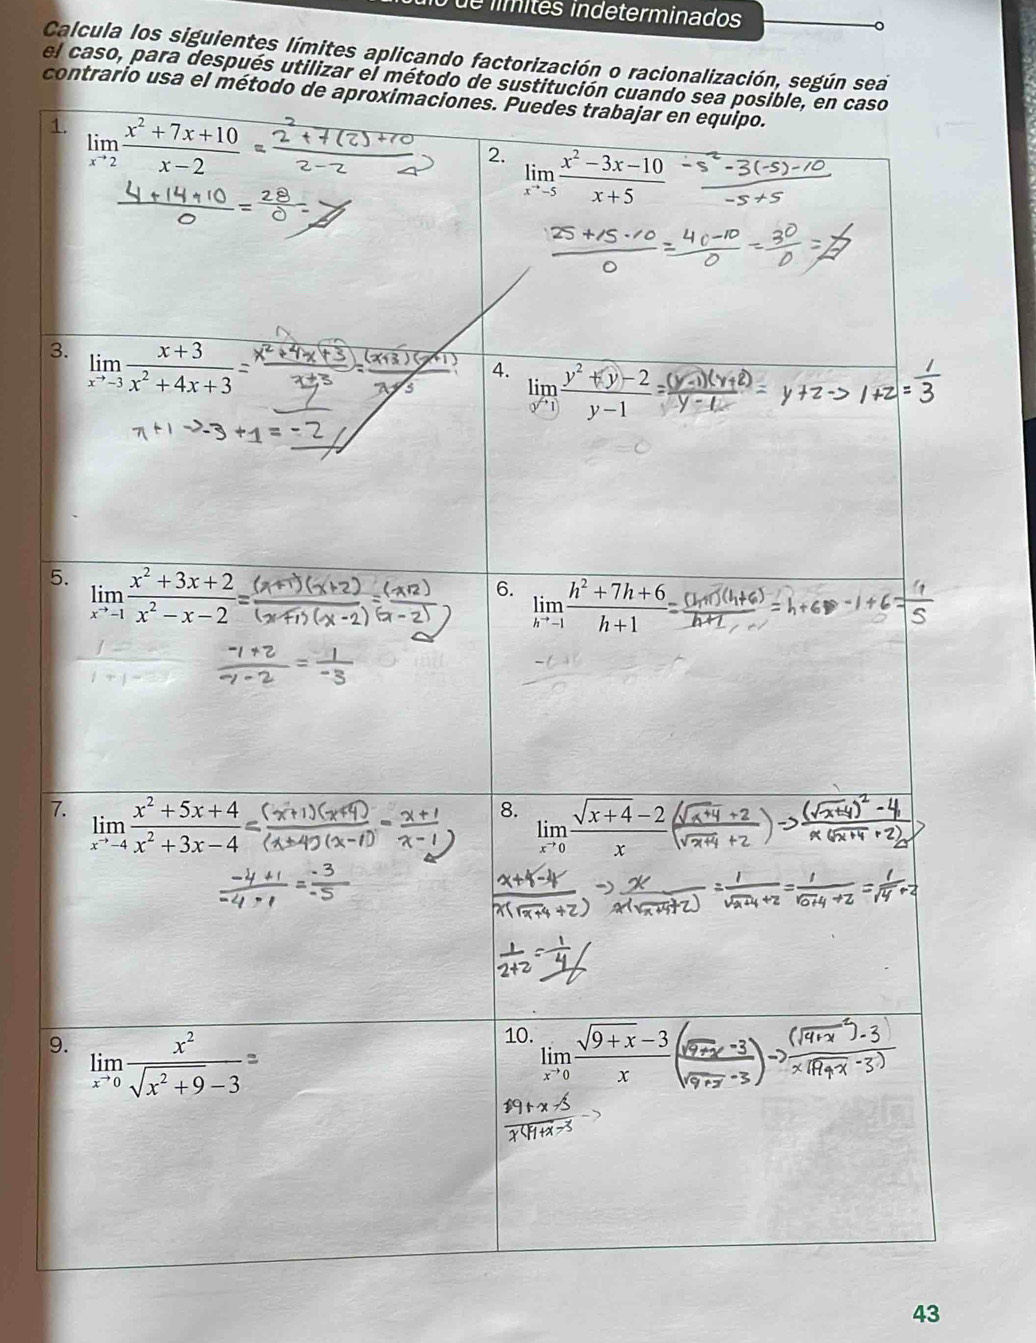 de límites indeterminados
Calcula los siguientes límites aplicando factorización o racionalización, según sea
el caso, para después utilizar el método de sustitución cuando sea posible, en caso
contrario usa el método de aproximaciones. Puedes trabajar en equipo.
1. lim x→2 (x² + 7x + 10)/(x − 2) = (2² + 7(2) + 10)/(2 − 2)
(4 + 14 + 10)/0 = 28/0 =
2. lim x→−5 (x² − 3x − 10)/(x + 5) (−5² − 3(−5) − 10)/(−5 + 5)
(25 + 15 − 10)/0 = (40 − 10)/0 = 30/0 =
3. lim x→−3 (x + 3)/(x² + 4x + 3) = (x² + 4x + 3)/(x + 3) = (x + 3)(x + 1)/(x + 3)
x + 1 → −3 + 1 = −2
4. lim y→1 (y² + y − 2)/(y − 1) = (y − 1)(y + 2)/(y − 1) = y + 2 → 1 + 2 = 1/3
5. lim x→−1 (x² + 3x + 2)/(x² − x − 2) = (x + 1)(x + 2)/(x + 1)(x − 2) = (x + 2)/(x − 2)
(−1 + 2)/(−1 − 2) = 1/−3
6. lim h→−1 (h² + 7h + 6)/(h + 1) = (h + 1)(h + 6)/(h + 1) = h + 6 −1 + 6 = 1/5
7. lim x→−4 (x² + 5x + 4)/(x² + 3x − 4) = (x + 1)(x + 4)/(x + 4)(x − 1) = (x + 1)/(x − 1)
(−4 + 1)/(−4 − 1) = −3/−5
8. lim x→0 (√(x + 4) − 2)/x ((√(x + 4) + 2)/(√(x + 4) + 2)) → ((√(x + 4))² − 4)/(x(√(x + 4) + 2))
(x + 4 − 4)/(x(√(x + 4) + 2)) → x/(x(√(x + 4) + 2)) = 1/(√(x + 4) + 2) = 1/(√(0 + 4) + 2) = 1/(√4 + 2)
1/(2 + 2) = 1/4
9. lim x→0 x²/(√(x² + 9) − 3) =
10. lim x→0 (√(9 + x) − 3)/x ((√(9 + x) − 3)/(√(9 + x) − 3)) → ((√(9 + x)²) − 3)/(x(√(9 + x) − 3))
(9 + x − 3)/(x(√(9 + x) − 3)) →
43